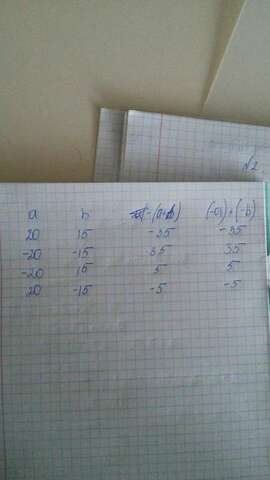 №2
a b -(a+b) (-a)+(-b)
20 15 -35 -35
-20 -15 35 35
-20 15 5 5
20 -15 -5 -5